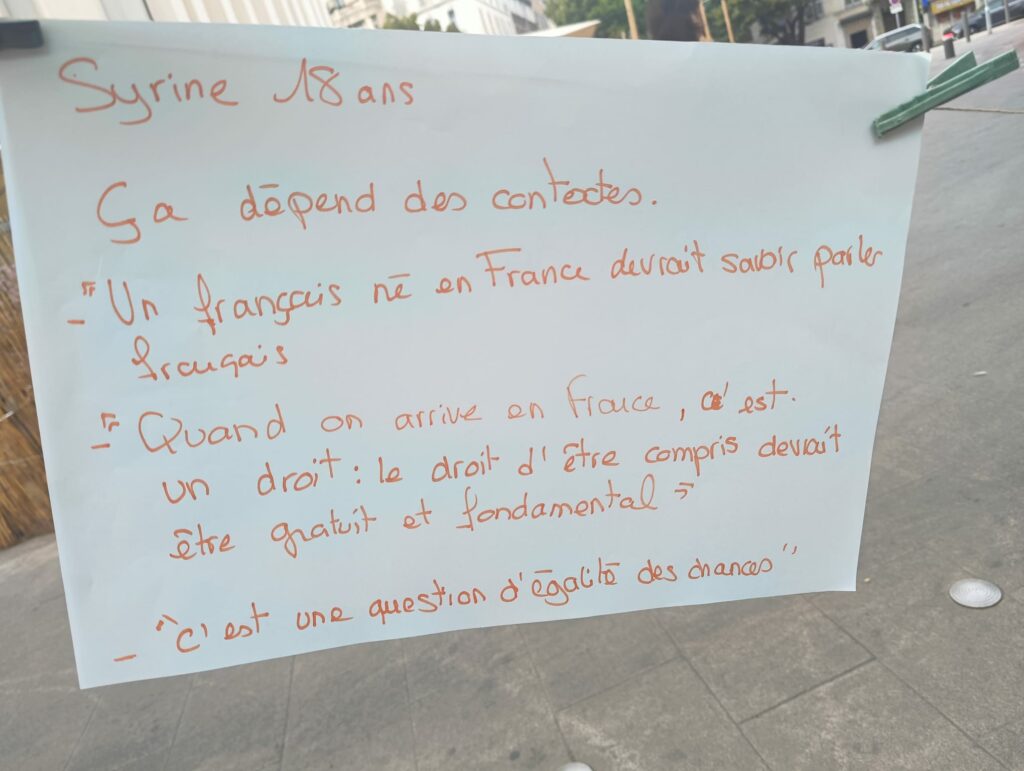 Syrine 18 ans
Ça dépend des contextes.
- "Un français né en France devrait savoir parler
français
- "Quand on arrive en France, c'est.
un droit : le droit d'être compris devrait
être gratuit et fondamental"
- "c'est une question d'égalité des chances"